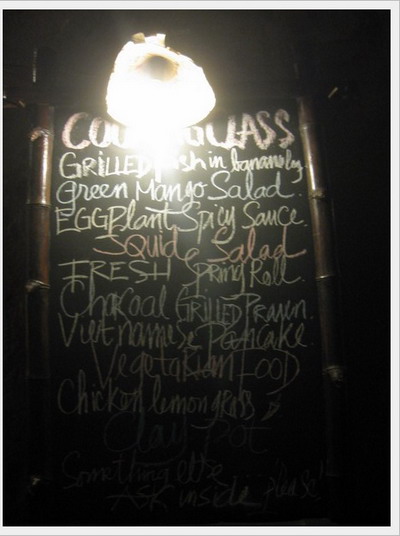 COOKING CLASS
GRILLED Fish in banana leaf
Green Mango Salad.
EGGPlant Spicy Sauce.
Squid Salad
FRESH Spring Roll.
Charcoal GRILLED Prawn.
Vietnamese Pancake.
Vegetarian FOOD
Chicken lemongrass
Clay Pot
Something else
ASK inside Please!